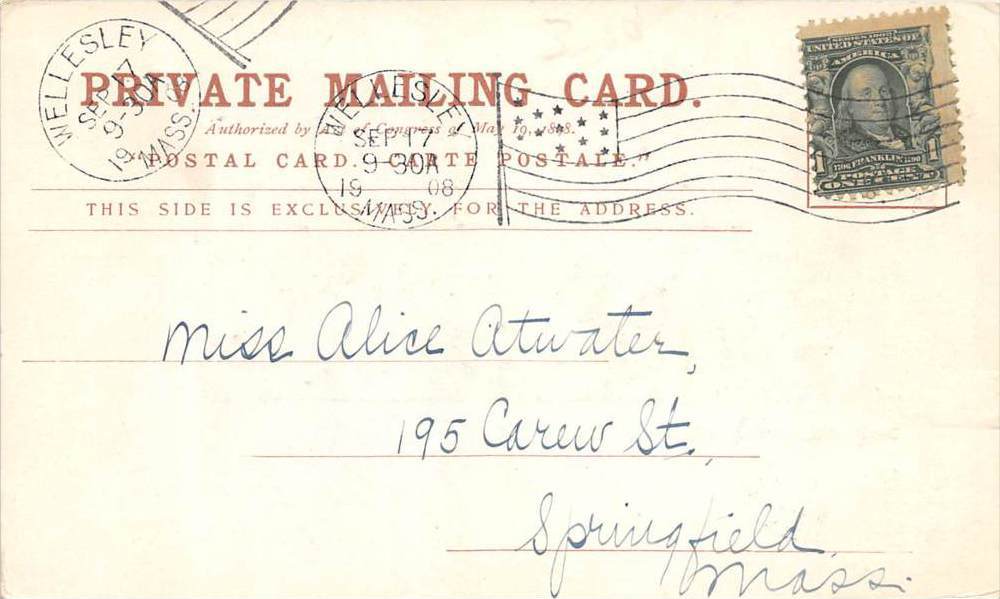 WELLESLEY
SEP 17
9-30A
1908
MASS.
PRIVATE MAILING CARD.
Authorized by Act of Congress of May 19, 1898.
"POSTAL CARD.—CARTE POSTALE."
THIS SIDE IS EXCLUSIVELY FOR THE ADDRESS.
WELLESLEY
SEP 17
9-30A
19 08
MASS.
SERIES 1902
UNITED STATES OF
AMERICA
1706 FRANKLIN 1790
1 POSTAGE 1
ONE CENT
Miss Alice Atwater,
195 Carew St.,
Springfield
Mass.